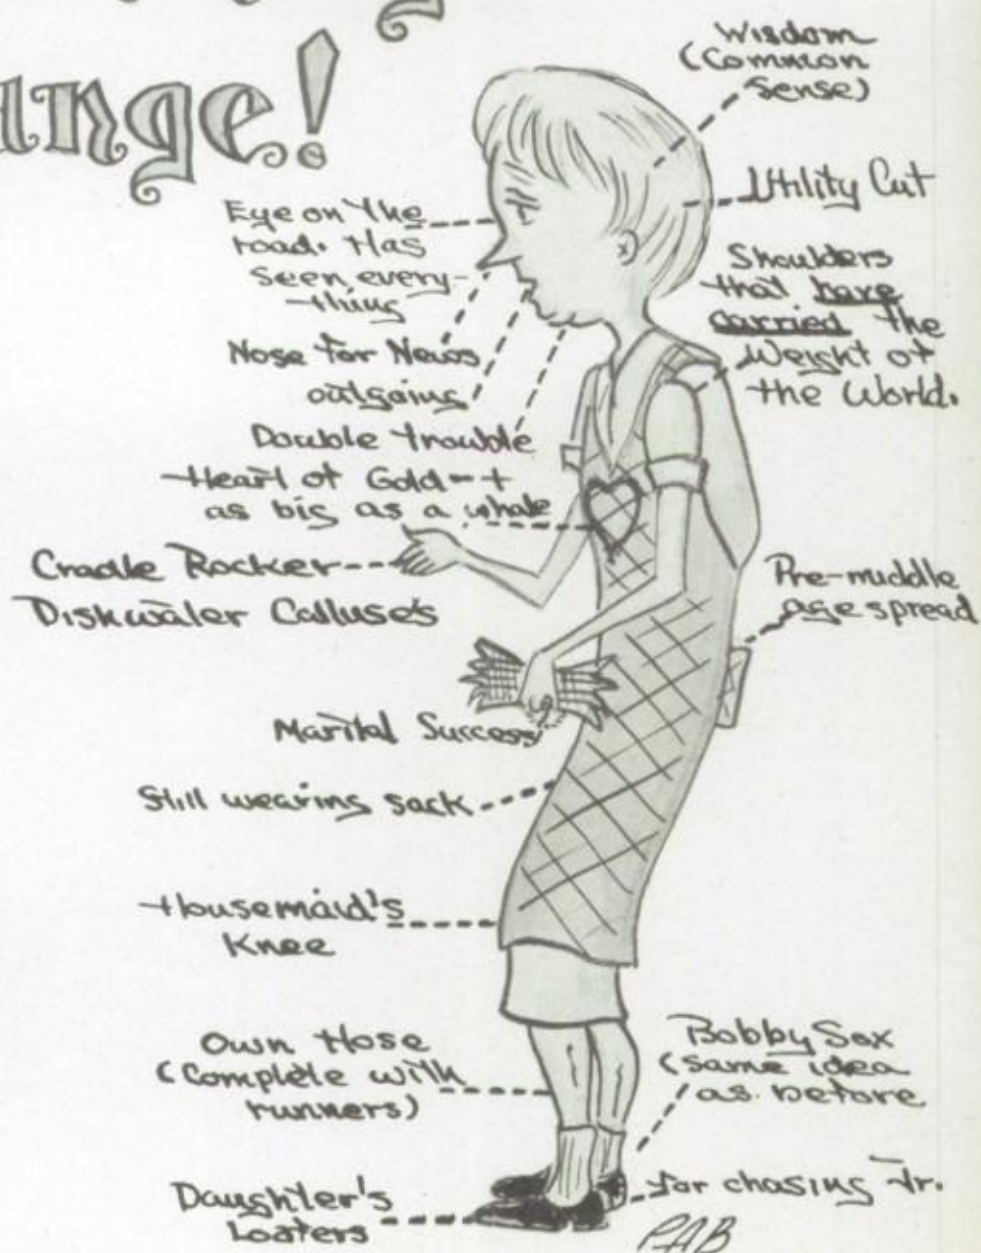 ange!
Wisdom
(Common
Sense)
Utility Cut
Eye on the
road. Has
seen every-
thing
Shoulders
that have
carried the
Weight of
the World.
Nose for News
outgoing
Double trouble
Heart of Gold - +
as big as a whale
Cradle Rocker
Dishwater Calluses
Pre-middle
age spread
Marital Success
Still wearing sack
Housemaid's
Knee
Own Hose
(Complete with
runners)
Bobby Sox
(same idea
as before
Daughter's
Loafers
for chasing Jr.
PAB